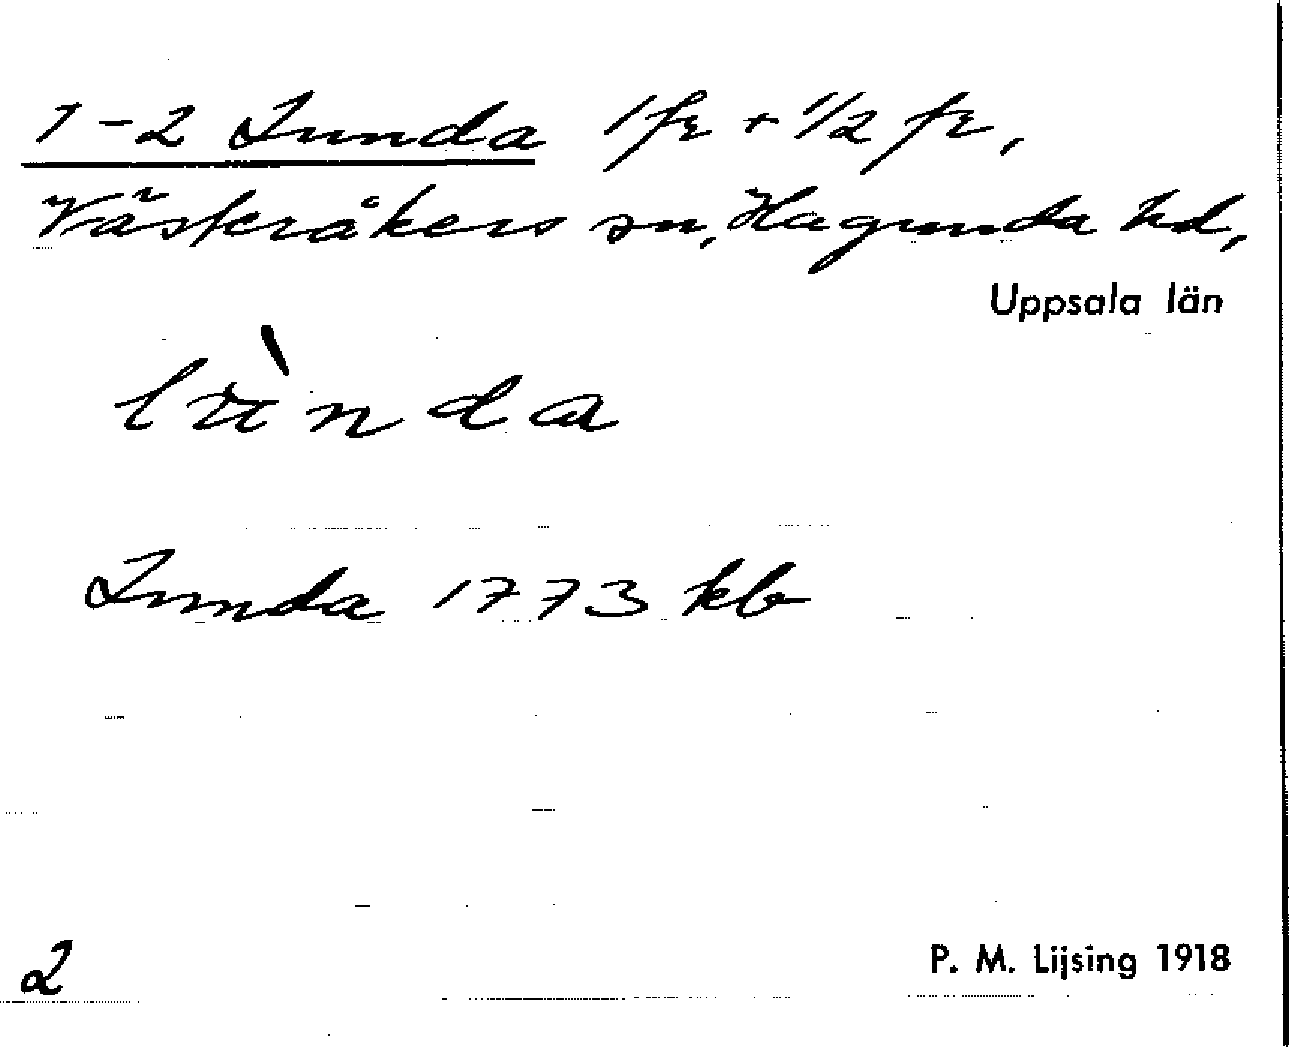 1-2 Lunda 1 fr + 1/2 fr,
Västeråkers sn, Hagunda hd,
Uppsala län
lùnda
Lunda 1773 kb
2
P. M. Lijsing 1918